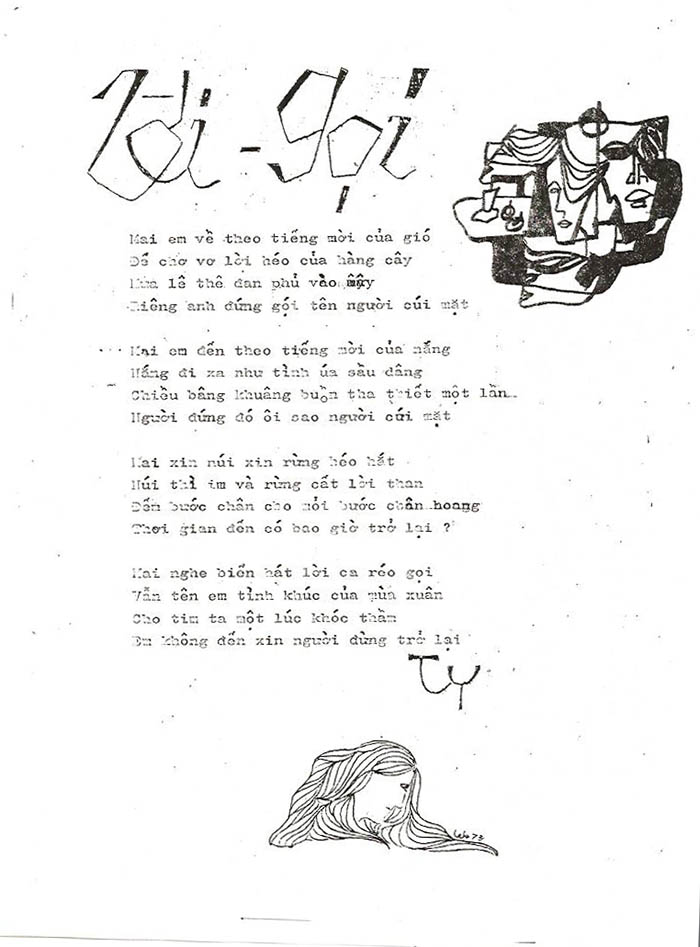 Lời - gọi
Mai em về theo tiếng mời của gió
Để chơ vơ lời héo của hàng cây
Mưa lê thê đan phủ vào mây
Riêng anh đứng gọi tên người cúi mặt
Mai em đến theo tiếng mời của nắng
Nắng đi xa như tình úa sầu dâng
Chiều bâng khuâng buồn tha thiết một lần
Người đứng đó ôi sao người cúi mặt
Mai xin núi xin rừng héo hắt
Núi thì im và rừng cất lời than
Đếm bước chân cho mỏi bước chân hoang
Thời gian đến có bao giờ trở lại ?
Mai nghe biển hát lời ca réo gọi
Vẫn tên em tình khúc của mùa xuân
Cho tim ta một lúc khóc thầm
Em không đến xin người đừng trở lại
Ty
73